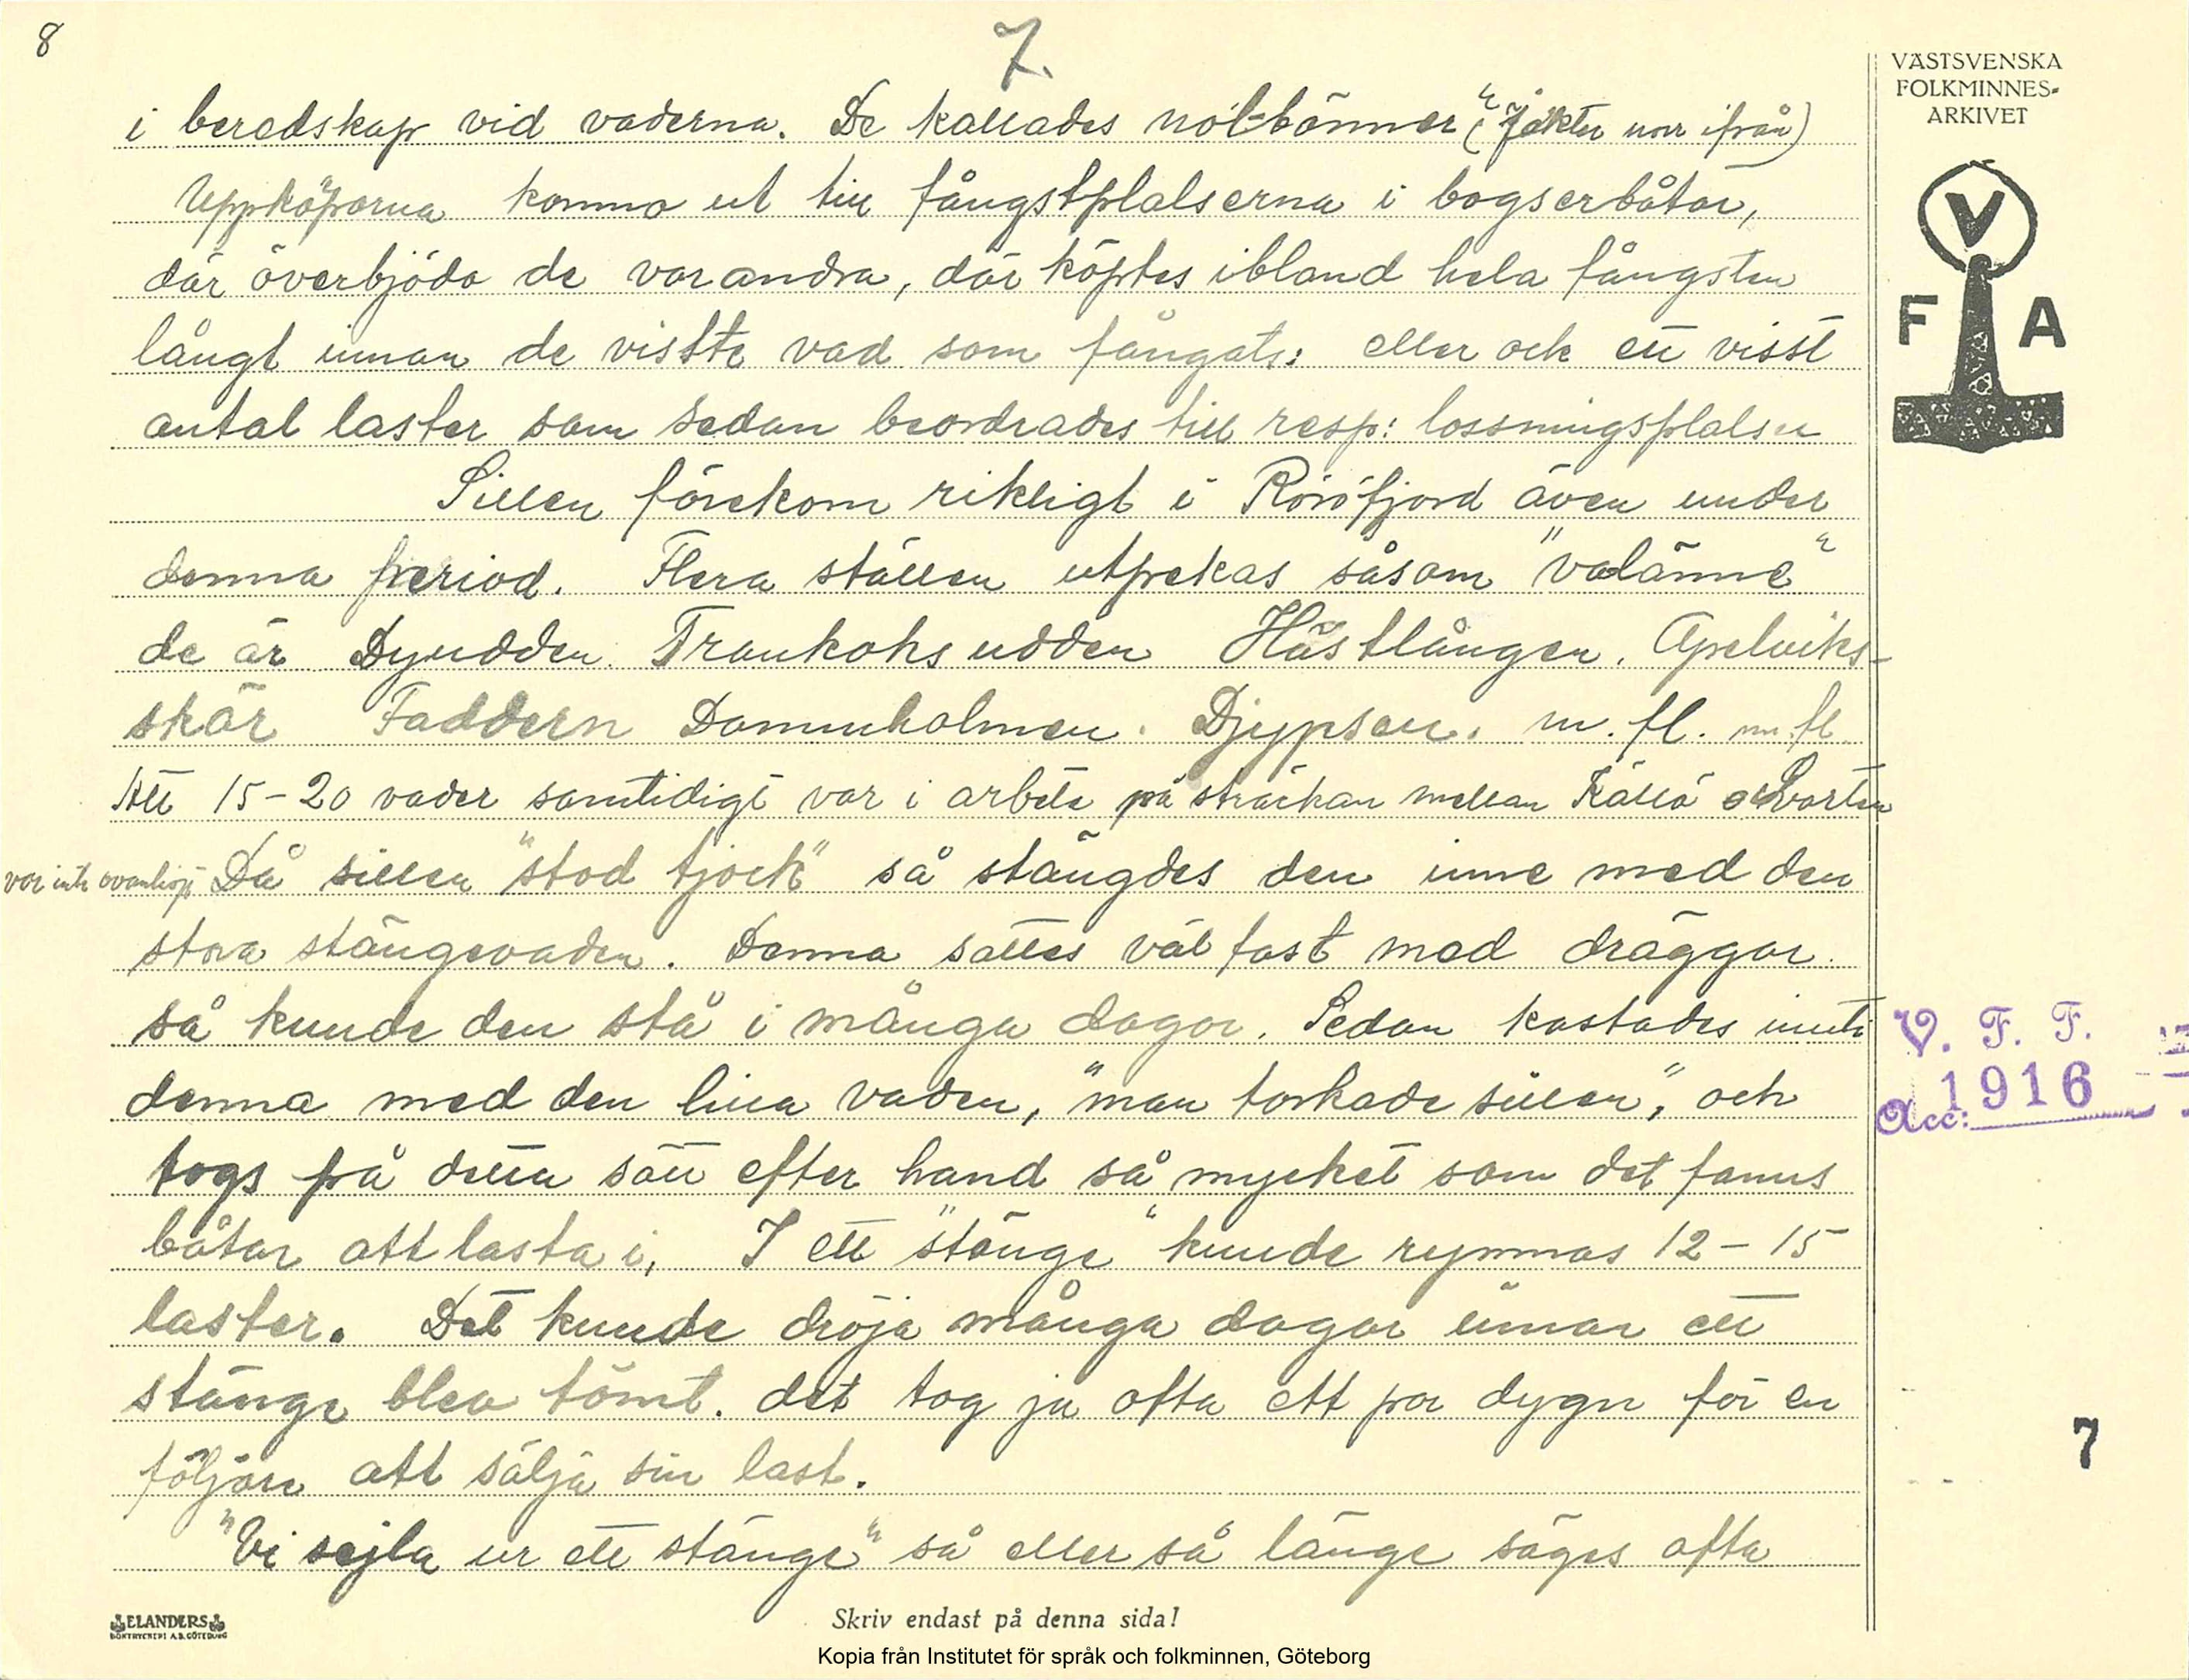 8
7.
VÄSTSVENSKA
FOLKMINNES-
ARKIVET
V
F A
i beredskap vid vaderna. De kallades nol-bönner" (Jakter norr ifrån)
Uppköparna kommo ut till fångstplatserna i bogserbåtar,
där överbjödo de varandra, där köptes ibland hela fångsten
långt innan de visste vad som fångats: eller ock ett visst
antal laster som sedan beordrades till resp: lossningsplatser
Sillen förekom rikligt i Röröfjord även under
denna period. Flera ställen utpekas såsom "valänne"
de är Dyudden. Trankoksudden Hästlången. Apelviks-
skär Faddern Dammholmen. Djypsen. m. fl. m. fl
Att 15-20 vader samtidigt var i arbete på sträckan mellan Källö o Svarten
var inte ovanligt Då sillen "stod tjock" så stängdes den inne med den
stora stängevaden. Denna sattes väl fast med dräggar
så kunde den stå i många dagar. Sedan kastades inuti
denna med den lilla vaden, "man torkade sillen", och
togs på detta sätt efter hand så mycket som det fanns
båtar att lasta i, I ett "stänge" kunde rymmas 12-15
laster. Det kunde dröja många dagar innan ett
stänge blev tömt. det tog ju ofta ett par dygn för en
följare att sälja sin last.
"Vi sejla ur ett stänge" så eller så länge säges ofta
V. F. F.
Acc: 1916
7
ELANDERS
BOKTRYCKERI A.B. GÖTEBORG
Skriv endast på denna sida!
Kopia från Institutet för språk och folkminnen, Göteborg